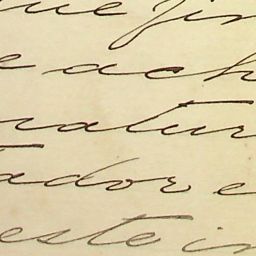 ue fir
e ach
natur
tador e
este in